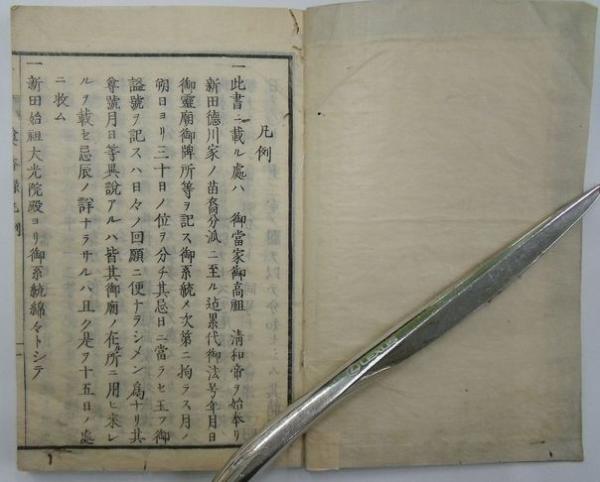 凡例
一此書ニ載ル處ハ 御當家御高祖 清和帝ヲ始奉リ
新田德川家ノ苗裔分派ニ至ル迠累代御法号年月日
御靈廟御牌所等ヲ記ス御系統ノ次第ニ拘ラス月ノ
朔日ヨリ三十日ノ位ヲ分チ其忌日ニ當ラセ玉フ御
謚號ヲ記スハ日々ノ回願ニ便ナラシメン爲ナリ其
尊號月日等異説アルハ皆其御廟ノ在所ニ用ヒ來レ
ルヲ載セ忌辰ノ詳ナラサルハ且ク是ヲ十五日ノ處
ニ收ム
一新田始祖大光院殿ヨリ御系統綿々トシテ
凡例
一